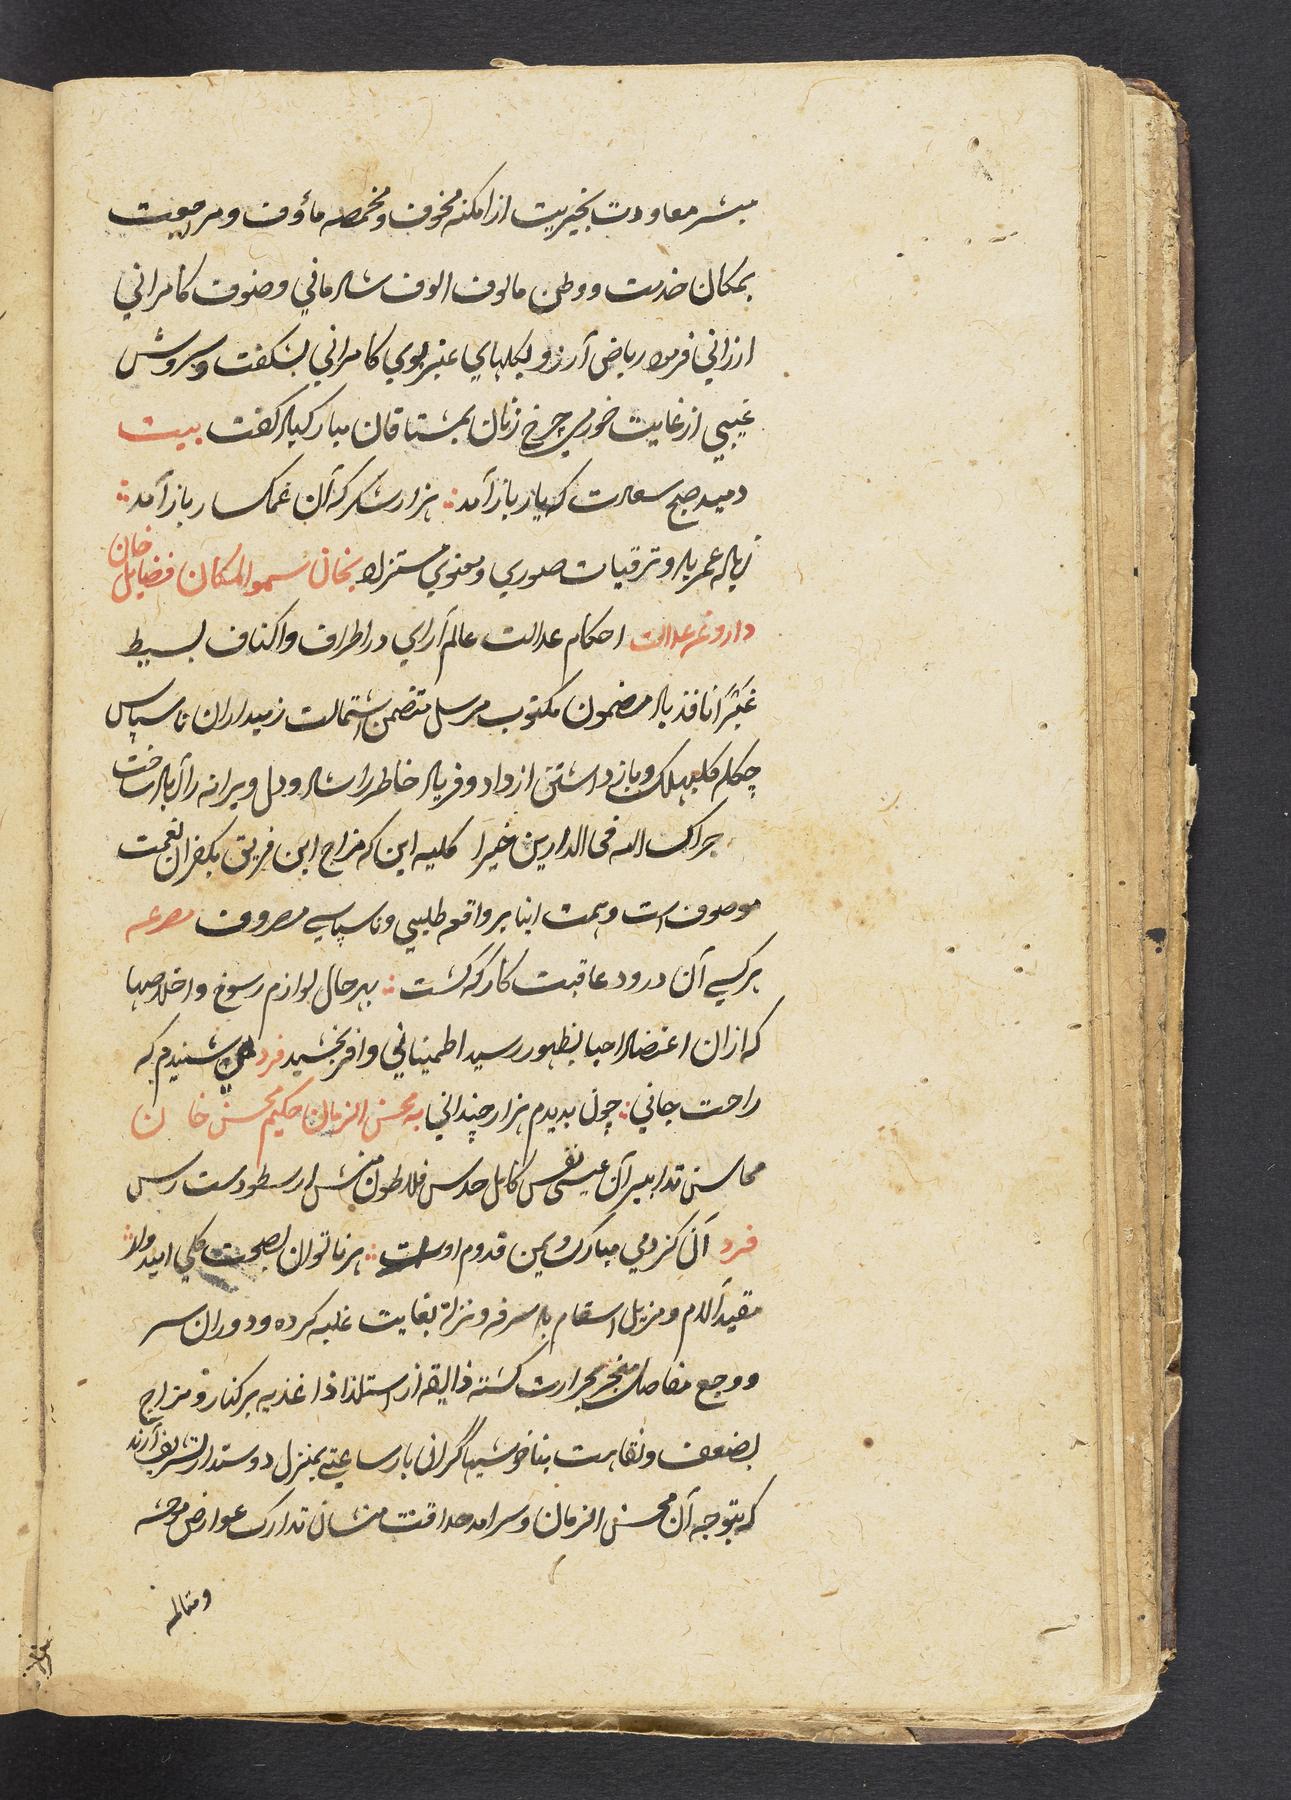 مبشر معاودت بخیریت از امکنه مخوف و مخمصه مأوف و مرجعت
بمکان خدمت و وطن مالوف الوف شادمانی و صنوف کامرانی
ارزانی فرمود ریاض آرزو بگلهای عنبر بوی کامرانی بشگفت و سروش
غیبی از غایت خورمی چرخ زنان بمشتاقان مبارکباد گفت بیت
دمید صبح سعادت که یار باز آمد هزار شکر که آن غمگسار باز آمد
زیاده عمر باد و ترقیات صوری و معنوی مستزاد بخان سموالمکان فضایل خان
داروغه عدالت احکام عدالت عالم آرای در اطراف و اکناف بسیط
غبرا نافذ باد مضمون مکتوب مرسل متضمن استمالت زمیداران ناسپاس
و باز داشتن از داد و فریاد خاطر را شاد و دل ویرانه را آباد ساخت
جزاک الله فی الدارین خیرا کلیه این که مزاج این فریق بکفران نعمت
موصوف است و همت اینا بر واقعه طلبی و ناسپاسی مصروف مصرعه
هر کسی آن درود عاقبت کار که کشت بهر حال لوازم رسوخ و اخلاصها
که ازان اعتضاد احبا بظهور رسید اطمینانی وافر بخشید فرد می شنیدم که
راحت جانی چون بدیدم هزار چندانی به محسن الزمان حکیم محسن خان
محاسن تدابیر آن عیسی نفس کامل حدس فلاطون منش ارسطو دست رس
فرد آن کز دمی مبارک و یمن قدوم اوست هر ناتوان بصحت کلی امیدوار
مقید آلام و مزیل اسقام باد سرفه و نزله بغایت غلبه کرده و دوران سر
و وجع مفاصل منجر بحرارت گشته ذایقه از استلذاذ اغذیه بر کنار و مزاج
بضعف و نقاهت بناخوشیها گران بار ساعتی بمنزل دوستدار تشریف آرند
که بتوجه آن محسن الزمان و سرامد حداقت منشان تدارک عوارض موحشه
و متالمه